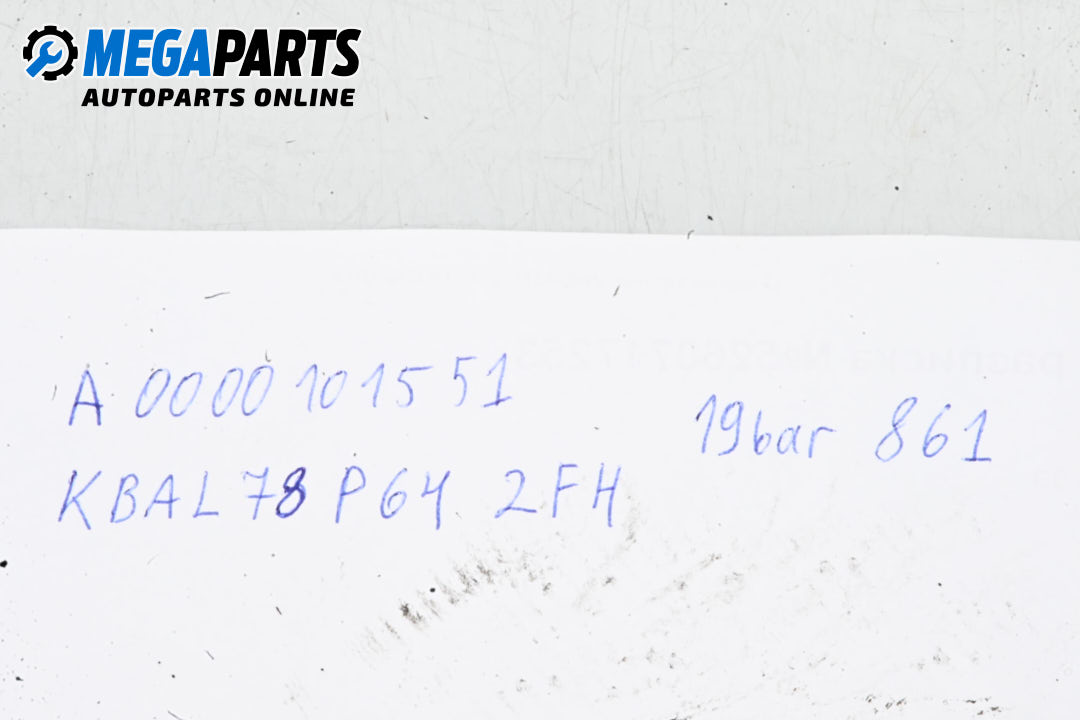 MEGAPARTS
AUTOPARTS ONLINE
A 0000 101551
19bar 861
KBAL78 P64 2FH